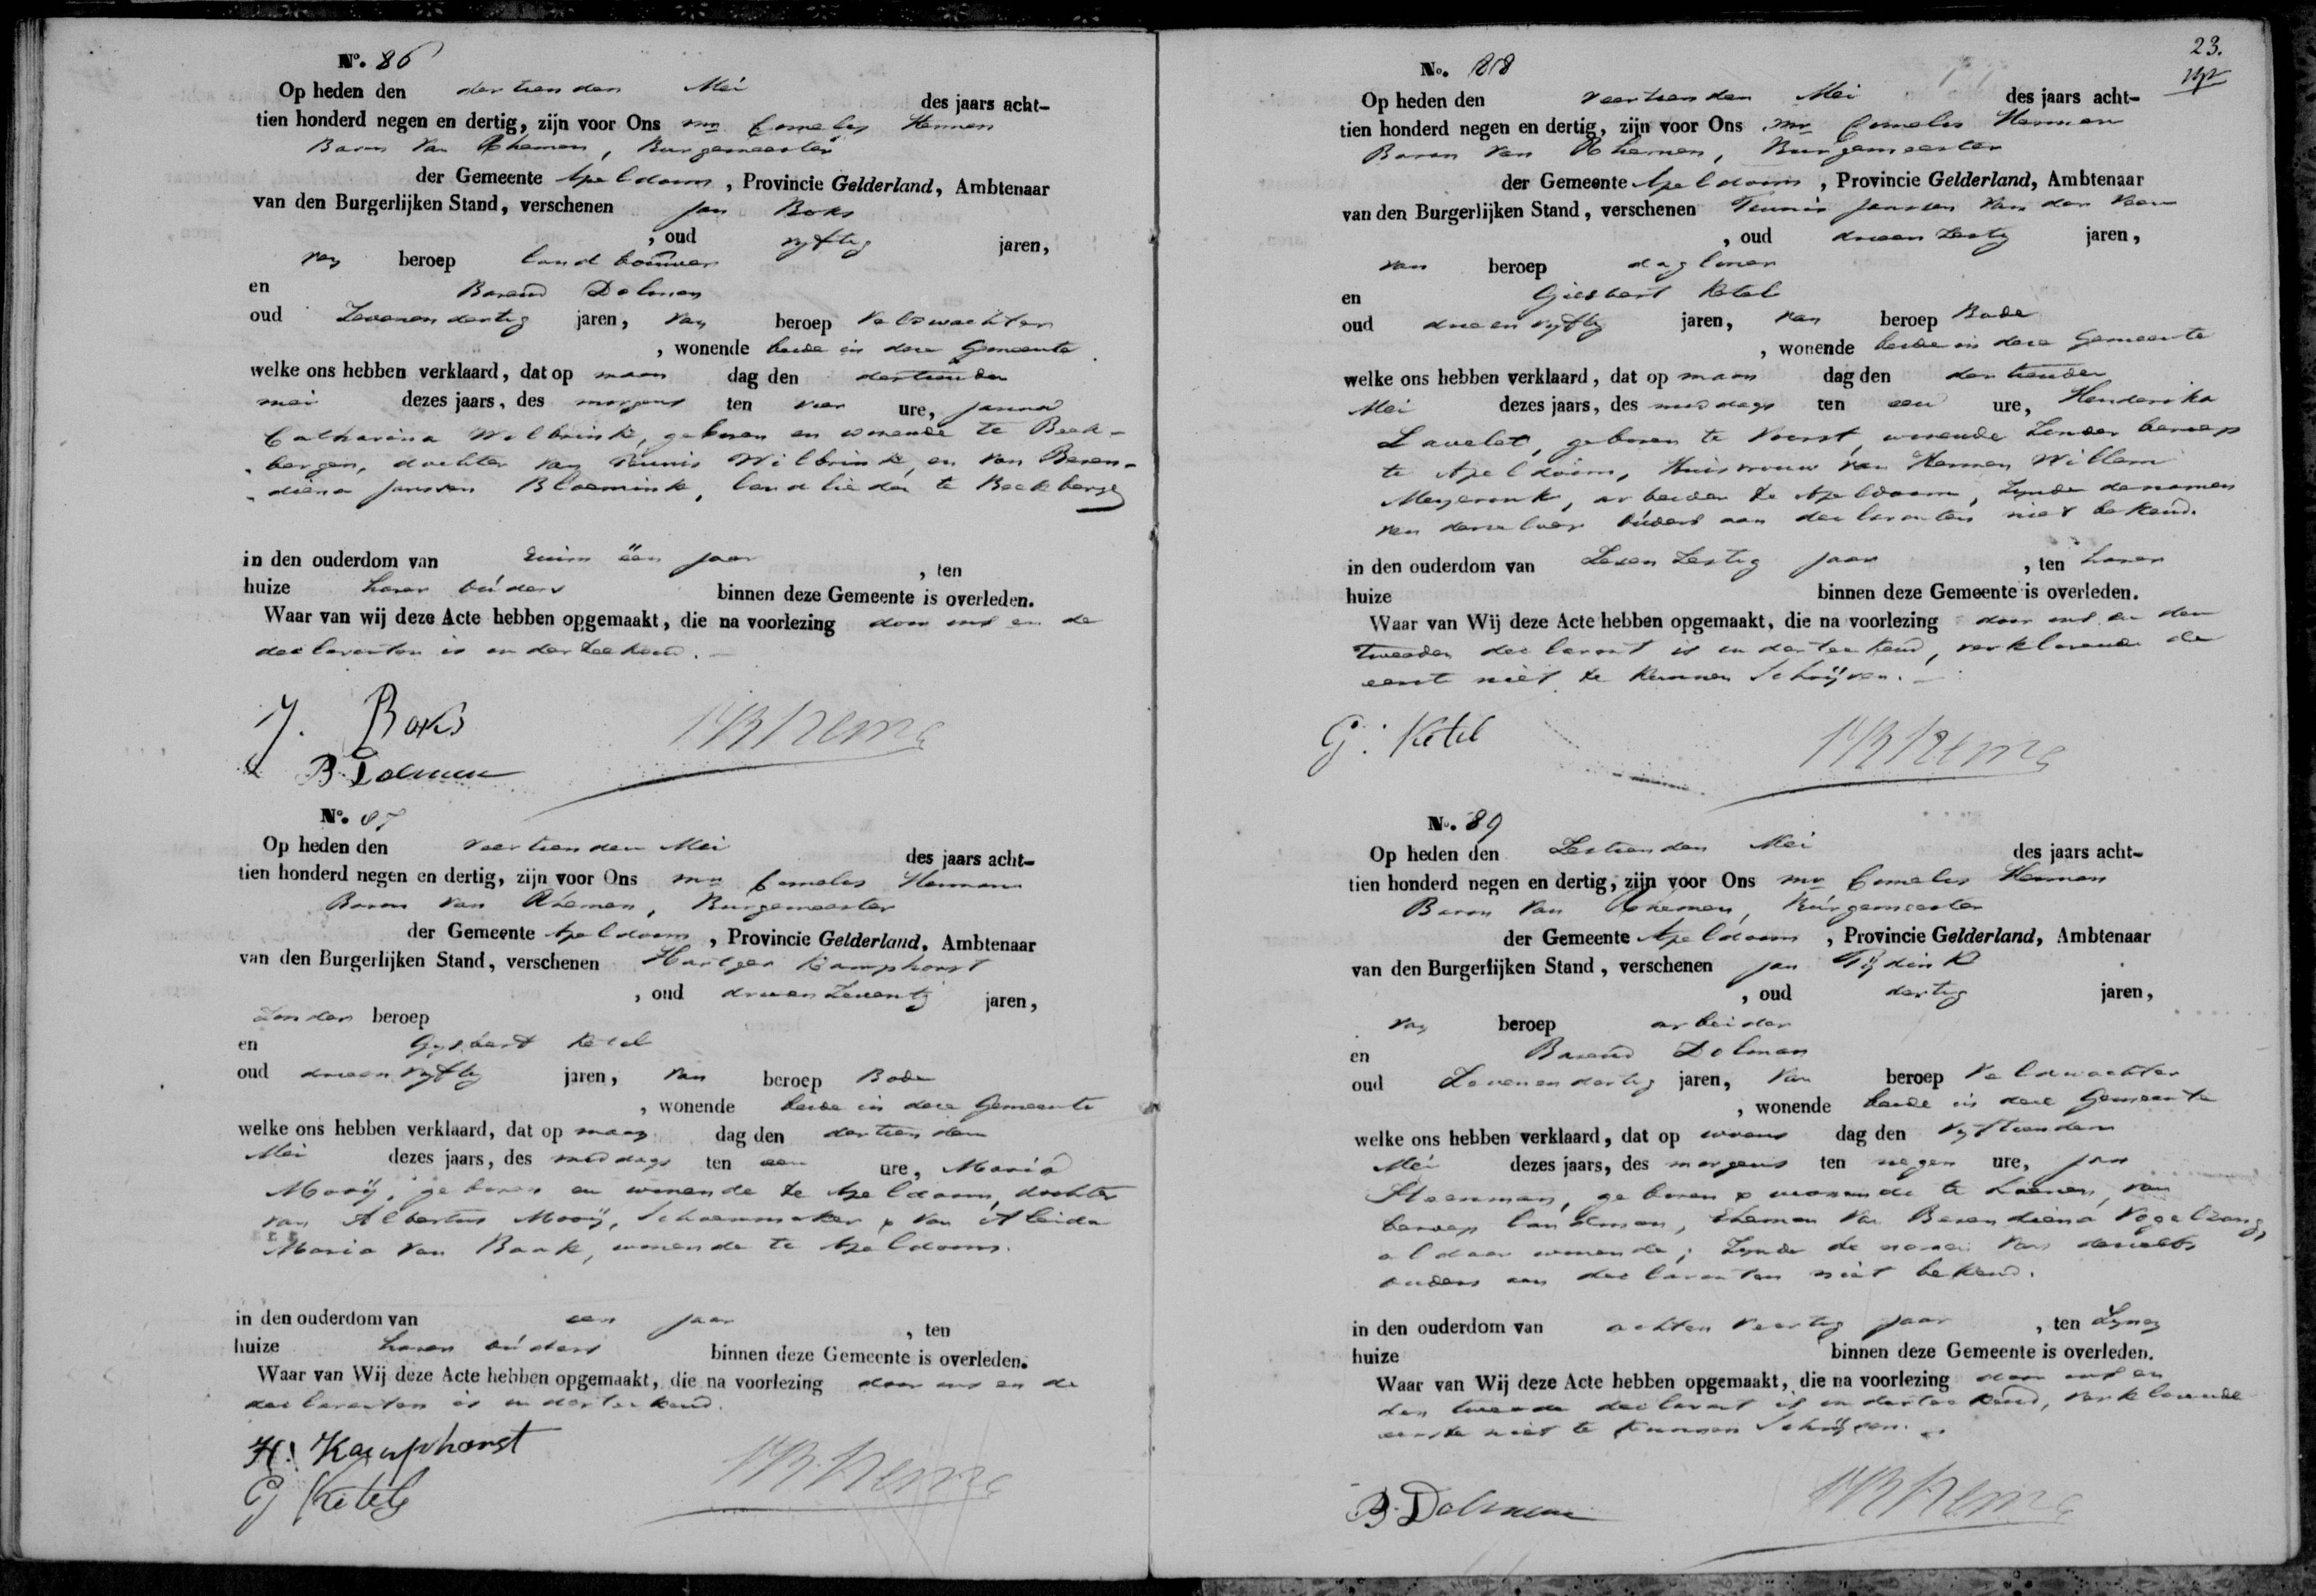 No. 86
Op heden den dertienden Mei des jaars acht-
tien honderd negen en dertig, zijn voor Ons mr Cornelis Herman
Baron van Rhemen, Burgemeester
der Gemeente Apeldoorn, Provincie Gelderland, Ambtenaar
van den Burgerlijken Stand, verschenen Jan Boks
, oud vyftig jaren,
van beroep landbouwer
en Barend Dolman
oud Zevenendertig jaren, van beroep Veldwachter
, wonende beide in deze Gemeente
welke ons hebben verklaard, dat op maan dag den dertienden
mei dezes jaars, des morgens ten vier ure, Janna
Catharina Wilbrink, geboren en wonende te Beek-
bergen, dochter van Teunis Wilbrink, en van Beren-
diena Janssen Bloemink, landlieden te Beekbergen
in den ouderdom van ruim één jaar , ten
huize harer ouders binnen deze Gemeente is overleden.
Waar van wij deze Acte hebben opgemaakt, die na voorlezing door ons en de
declaranten is onderteekend.
J. Boks
B. Dolman
No. 87
Op heden den veertienden Mei des jaars acht-
tien honderd negen en dertig, zijn voor Ons mr Cornelis Herman
Baron van Rhemen, Burgemeester
der Gemeente Apeldoorn, Provincie Gelderland, Ambtenaar
van den Burgerlijken Stand, verschenen Hartger Kamphorst
, oud drieenzeventig jaren,
Zonder beroep
en Gysbert Ketel
oud drieenvyftig jaren, van beroep Bode
, wonende beide in deze Gemeente
welke ons hebben verklaard, dat op maan dag den dertienden
Mei dezes jaars, des middags ten een ure, Maria
Mooij, geboren en wonende te Apeldoorn, dochter
van Albertus Mooij, Schoenmaker & van Aleida
Maria van Baak, wonende te Apeldoorn.
in den ouderdom van een jaar , ten
huize harer ouders binnen deze Gemeente is overleden.
Waar van Wij deze Acte hebben opgemaakt, die na voorlezing door ons en de
declaranten is onderteekend.
H. Kamphorst
G Ketel
23.
No. 88
Op heden den veertienden Mei des jaars acht-
tien honderd negen en dertig, zijn voor Ons mr Cornelis Herman
Baron van Rhemen, Burgemeester
der Gemeente Apeldoorn, Provincie Gelderland, Ambtenaar
van den Burgerlijken Stand, verschenen Teunis Janssen van der Veen
, oud drieenzestig jaren,
van beroep dagloner
en Giesbert Ketel
oud drieenvyftig jaren, van beroep Bode
, wonende beide in deze Gemeente
welke ons hebben verklaard, dat op maan dag den dertienden
Mei dezes jaars, des middags ten een ure, Henderika
Lavelet, geboren te Voorst, wonende Zonder beroep
te Apeldoorn, Huisvrouw van Herman Willem
Meyerink, arbeider te Apeldoorn, Zynde de namen
van derzelver ouders aan declaranten niet bekend.
in den ouderdom van Zesenzestig jaar , ten haren
huize binnen deze Gemeente is overleden.
Waar van Wij deze Acte hebben opgemaakt, die na voorlezing door ons en den
tweeden declarant is onderteekend, verklarende de
eerste niet te kunnen Schrijven.
G: Ketel
No. 89
Op heden den Zestienden Mei des jaars acht-
tien honderd negen en dertig, zijn voor Ons mr Cornelis Herman
Baron van Rhemen, Burgemeester
der Gemeente Apeldoorn, Provincie Gelderland, Ambtenaar
van den Burgerlijken Stand, verschenen Jan Tijdink
, oud dertig jaren,
van beroep arbeider
en Barend Dolman
oud Zevenendertig jaren, van beroep Veldwachter
, wonende beide in deze Gemeente
welke ons hebben verklaard, dat op woens dag den vyftienden
Mei dezes jaars, des morgens ten negen ure, Jan
Steenman, geboren & wonende te Loenen, van
beroep landman, Eheman van Berendiena Vogelzang,
aldaar wonende; Zynde de namen van deszelfs
ouders aan declaranten niet bekend.
in den ouderdom van achtenveertig jaar , ten Zynen
huize binnen deze Gemeente is overleden.
Waar van Wij deze Acte hebben opgemaakt, die na voorlezing door ons en
den tweede declarant is onderteekend, verklarende
eerste niet te kunnen Schrijven.
B. Dolman